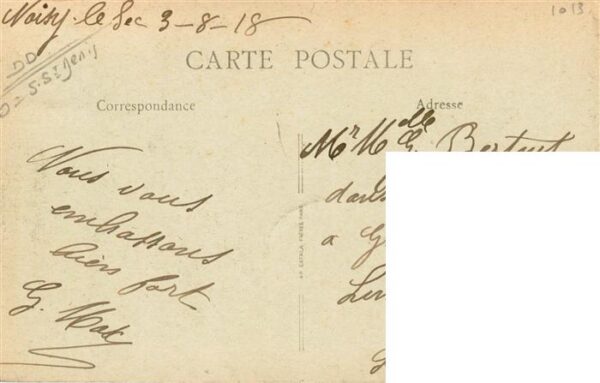 Noisy-le Sec 3-8-18
1013
DD
S. St Denis
CARTE POSTALE
Correspondance
Adresse
Nous vous
embrassons
bien fort
G.
Mr Melle G.
dans
a G
CATALA FRÈRES PARIS